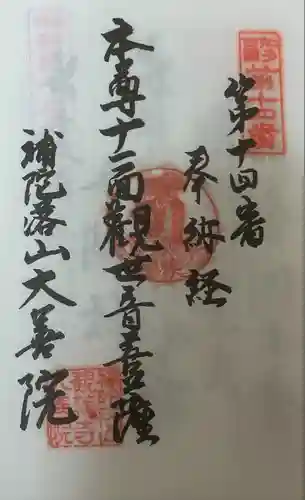 第十四番
奉納経
本尊十一面觀世音菩薩
補陀落山大善院